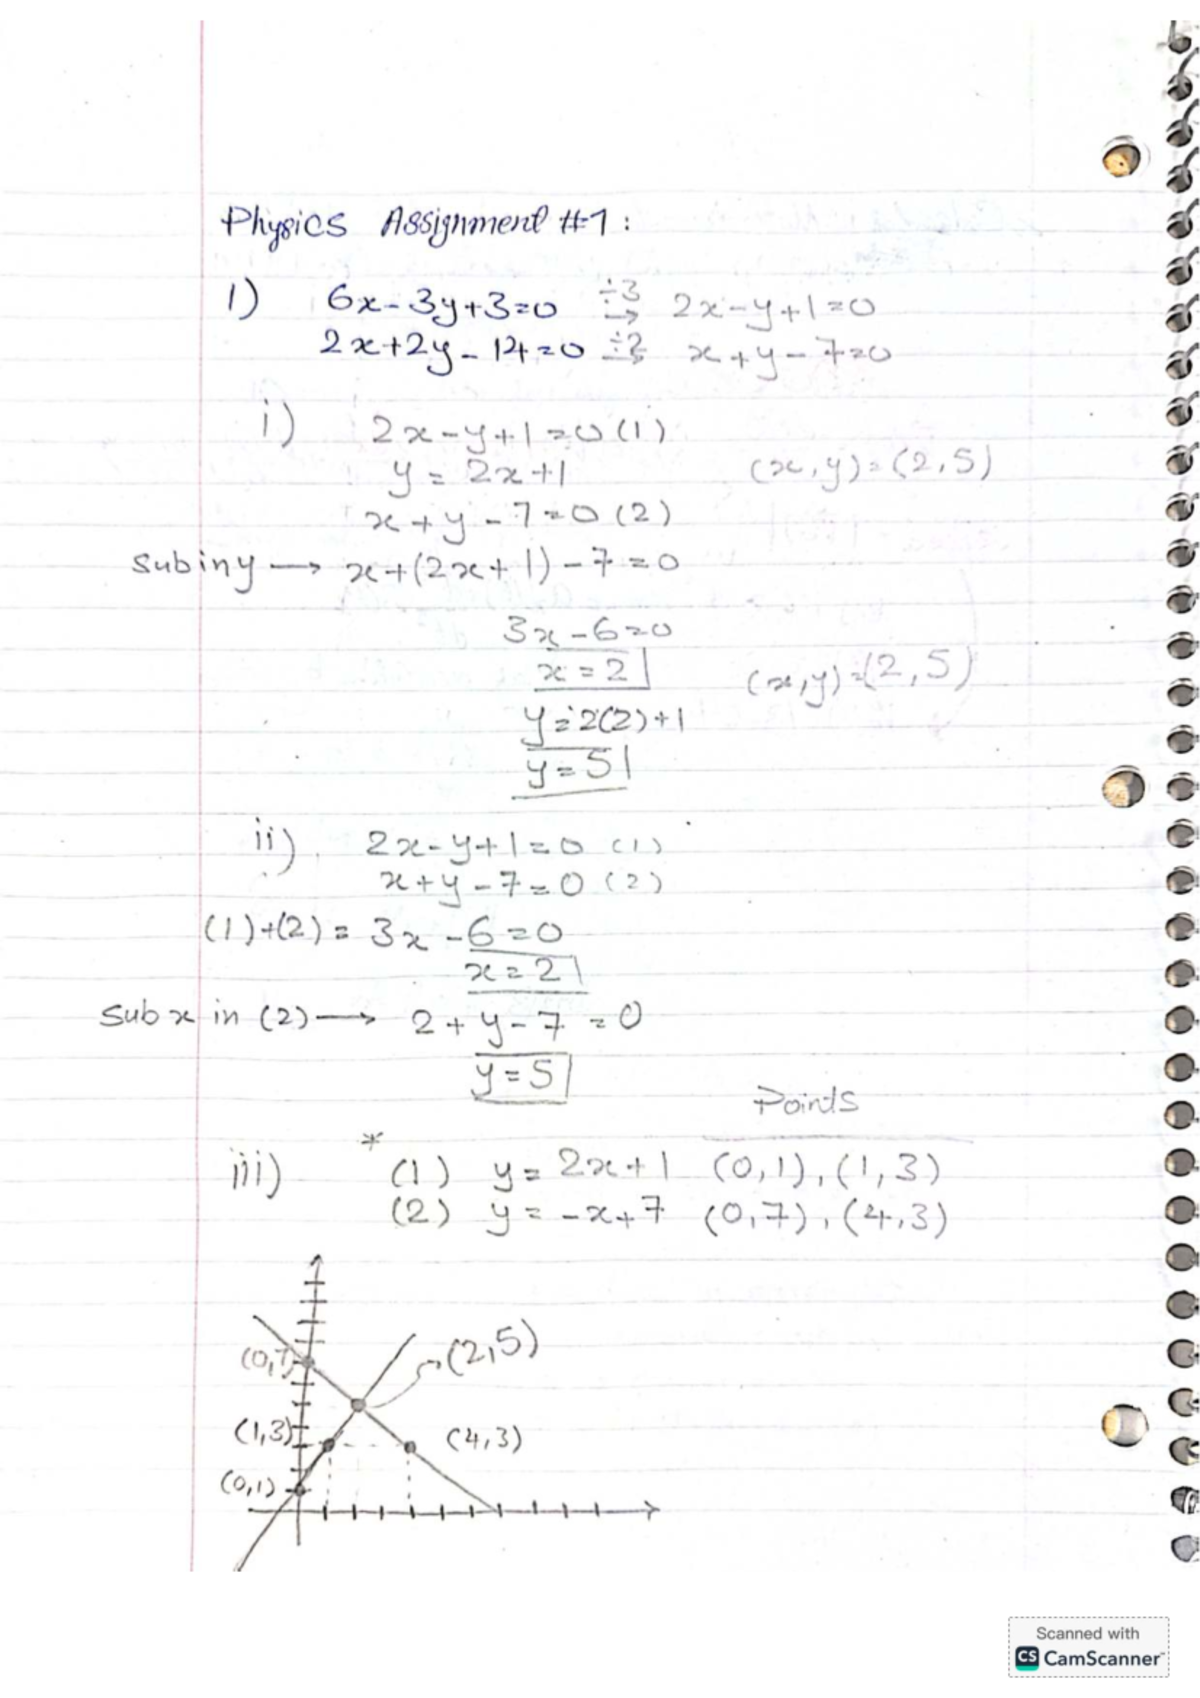 Physics Assignment #1:
1) 6x-3y+3=0 ÷3→ 2x-y+1=0
2x+2y-14=0 ÷2→ x+y-7=0
i) 2x-y+1=0 (1)
y=2x+1 (x,y)=(2,5)
x+y-7=0 (2)
Sub in y → x+(2x+1)-7=0
3x-6=0
x=2 (x,y)=(2,5)
y=2(2)+1
y=5
ii) 2x-y+1=0 (1)
x+y-7=0 (2)
(1)+(2)= 3x-6=0
x=2
Sub x in (2) → 2+y-7=0
y=5
Points
*
iii) (1) y=2x+1 (0,1), (1,3)
(2) y=-x+7 (0,7), (4,3)
(0,7) (2,5)
(1,3) (4,3)
(0,1)
Scanned with
CS CamScanner